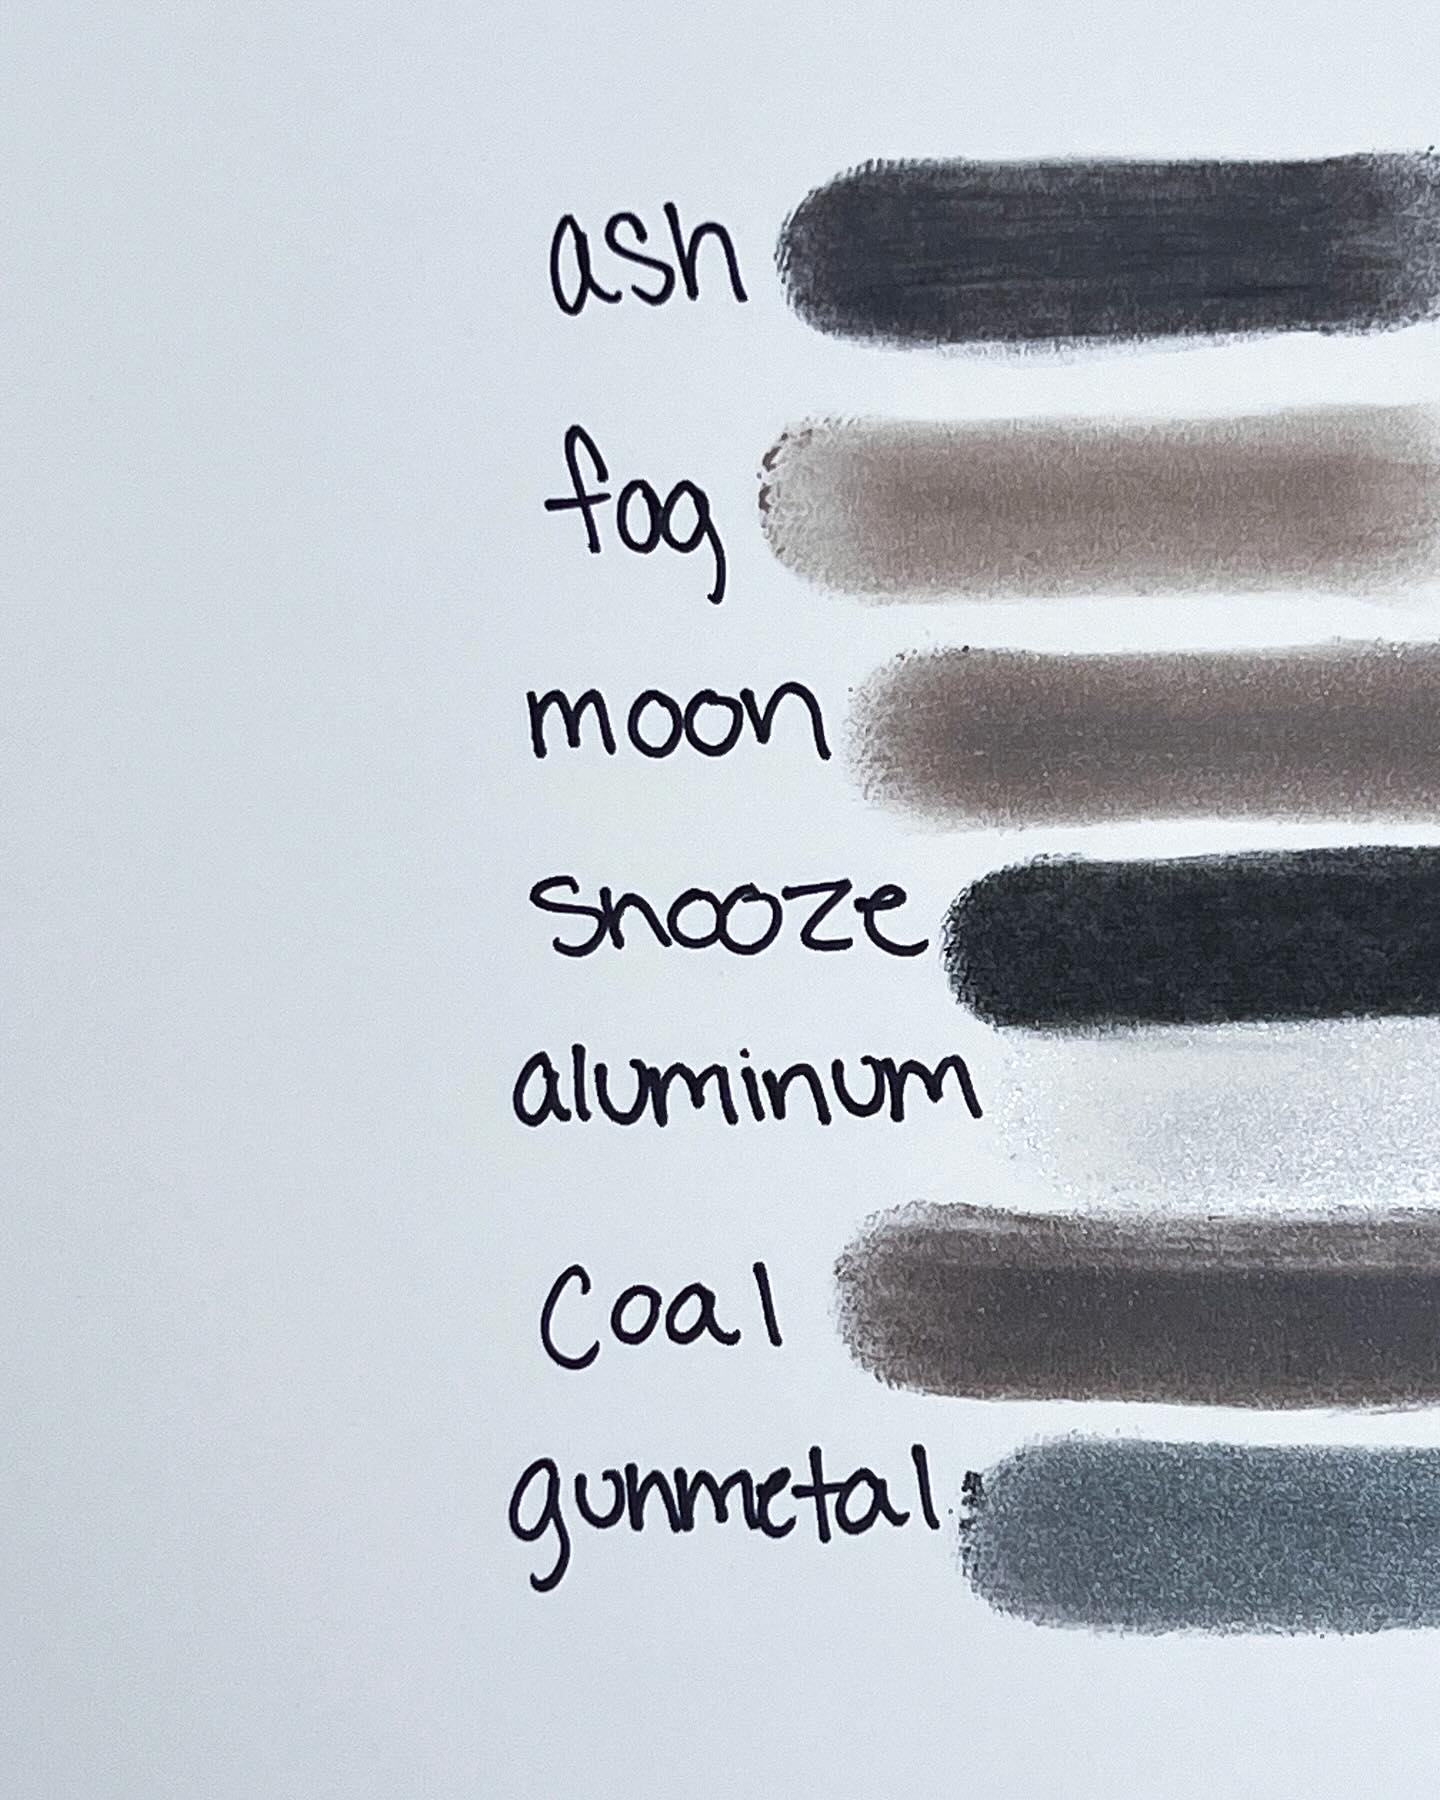 ash
fog
moon
Snooze
aluminum
Coal
gunmetal